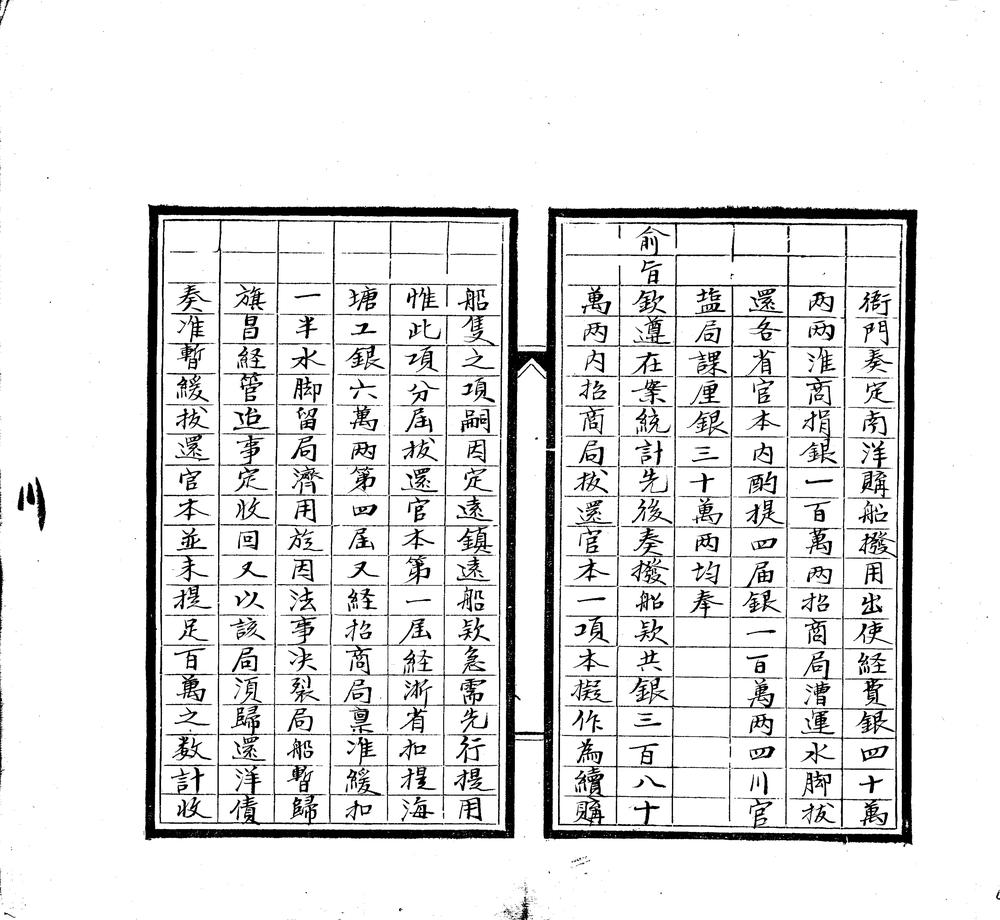 衙門奏定南洋購船撥用出使経費銀四十萬
两兩淮商捐銀一百萬两招商局漕運水脚拔
還各省官本内酌提四届銀一百萬两四川官
塩局課厘銀三十萬两均奉
俞旨欽遵在案統計先後奏撥船欵共銀三百八十
萬两内招商局拔還官本一項本擬作為續購
船隻之項嗣因定遠鎮遠船欵急需先行提用
惟此項分屆拔還官本第一屆経浙省扣提海
塘工銀六萬两第四屆又経招商局禀准緩扣
一半水脚留局濟用旋因法事决裂局船暫歸
旗昌経管迨事定收回又以該局湏歸還洋債
奏准暫緩拔還官本並未提足百萬之数計收
川